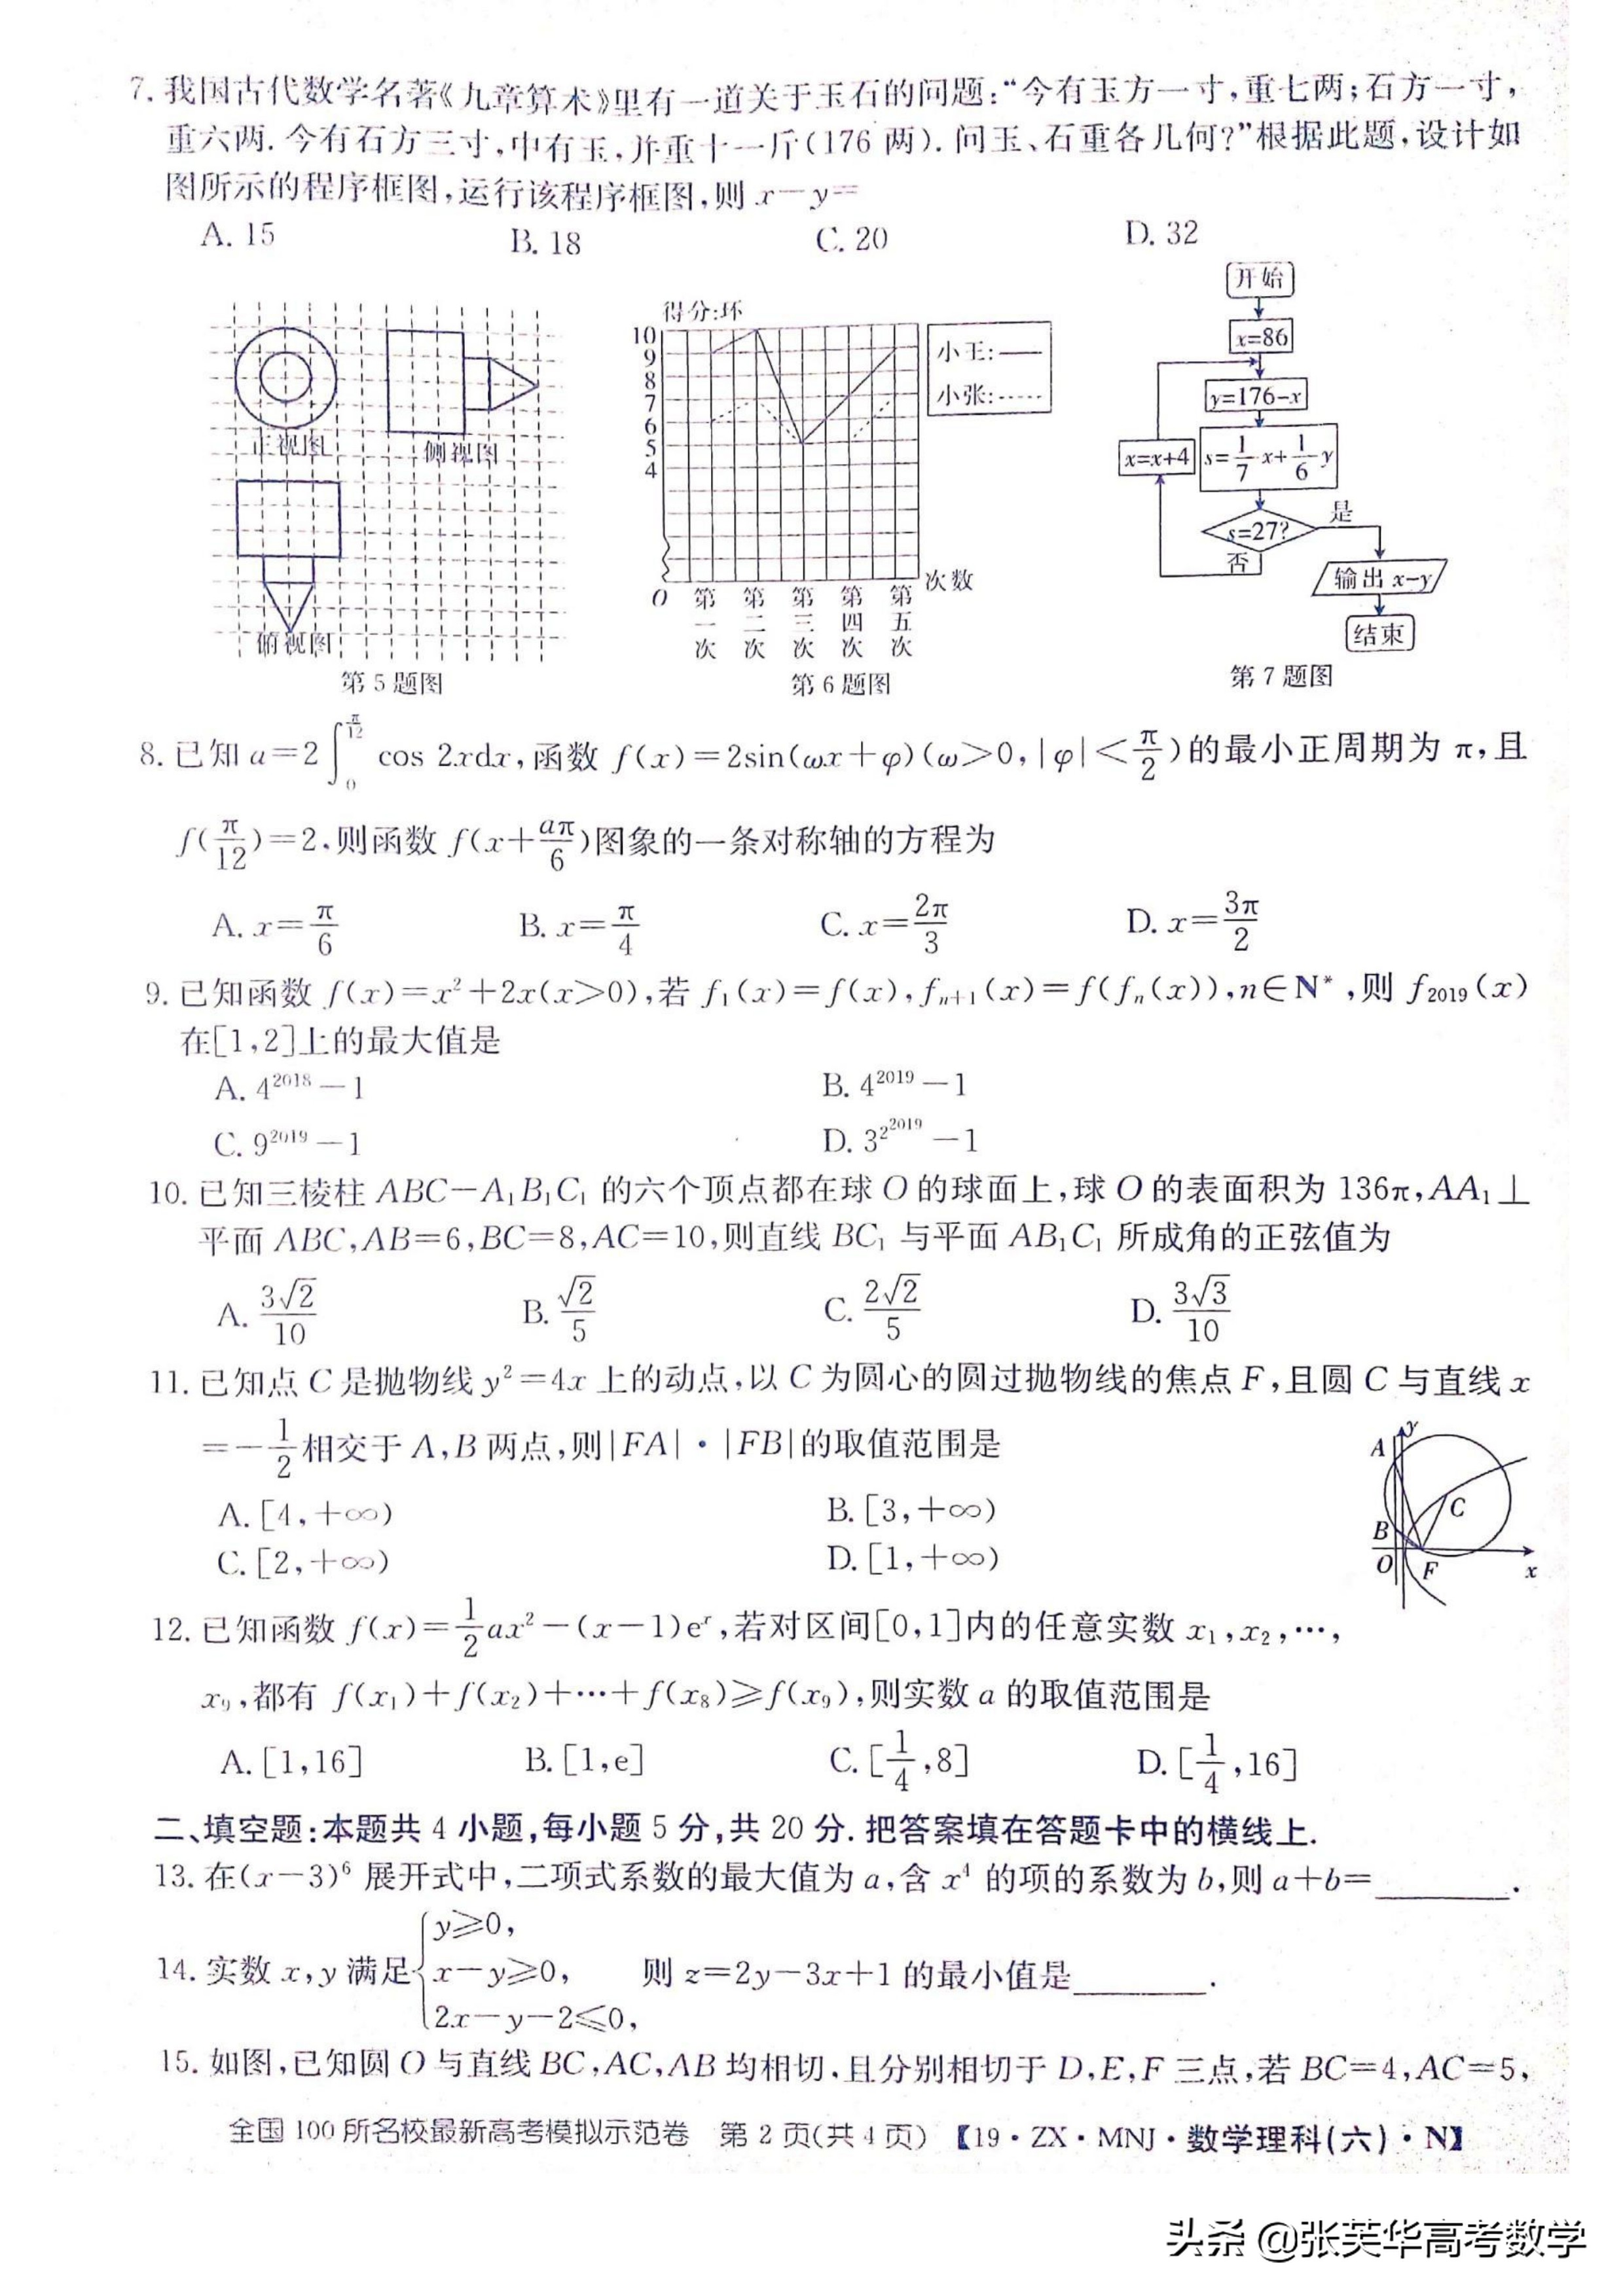 7. 我国古代数学名著《九章算术》里有一道关于玉石的问题:“今有玉方一寸,重七两;石方一寸,
重六两. 今有石方三寸,中有玉,并重十一斤(176 两). 问玉、石重各几何?”根据此题,设计如
图所示的程序框图,运行该程序框图,则 x-y=
A. 15 B. 18 C. 20 D. 32
正视图 侧视图
俯视图
第 5 题图
得分:环
10
9
8
7
6
5
4
O
第一次 第二次 第三次 第四次 第五次
次数
小王:——
小张:-----
第 6 题图
开始
x=86
y=176-x
x=x+4
s=1/7 x+1/6 y
s=27?
是
否
输出 x-y
结束
第 7 题图
8. 已知 a=2∫₀^(π/12) cos 2xdx,函数 f(x)=2sin(ωx+φ)(ω>0,|φ|<π/2)的最小正周期为 π,且
f(π/12)=2,则函数 f(x+aπ/6)图象的一条对称轴的方程为
A. x=π/6 B. x=π/4 C. x=2π/3 D. x=3π/2
9. 已知函数 f(x)=x²+2x(x>0),若 f₁(x)=f(x),fₙ₊₁(x)=f(fₙ(x)),n∈N*,则 f₂₀₁₉(x)
在[1,2]上的最大值是
A. 4²⁰¹⁸-1 B. 4²⁰¹⁹-1
C. 9²⁰¹⁹-1 D. 3^(2^2019)-1
10. 已知三棱柱 ABC-A₁B₁C₁ 的六个顶点都在球 O 的球面上,球 O 的表面积为 136π,AA₁⊥
平面 ABC,AB=6,BC=8,AC=10,则直线 BC₁ 与平面 AB₁C₁ 所成角的正弦值为
A. 3√2/10 B. √2/5 C. 2√2/5 D. 3√3/10
11. 已知点 C 是抛物线 y²=4x 上的动点,以 C 为圆心的圆过抛物线的焦点 F,且圆 C 与直线 x
=-1/2相交于 A,B 两点,则|FA|·|FB|的取值范围是
A. [4,+∞) B. [3,+∞)
C. [2,+∞) D. [1,+∞)
y
A
C
B
O F x
12. 已知函数 f(x)=1/2ax²-(x-1)eˣ,若对区间[0,1]内的任意实数 x₁,x₂,…,
x₉,都有 f(x₁)+f(x₂)+…+f(x₈)≥f(x₉),则实数 a 的取值范围是
A. [1,16] B. [1,e] C. [1/4,8] D. [1/4,16]
二、填空题:本题共 4 小题,每小题 5 分,共 20 分. 把答案填在答题卡中的横线上.
13. 在(x-3)⁶ 展开式中,二项式系数的最大值为 a,含 x⁴ 的项的系数为 b,则 a+b=________.
14. 实数 x,y 满足{y≥0, x-y≥0, 2x-y-2≤0, 则 z=2y-3x+1 的最小值是________.
15. 如图,已知圆 O 与直线 BC,AC,AB 均相切,且分别相切于 D,E,F 三点,若 BC=4,AC=5,
全国 100 所名校最新高考模拟示范卷 第 2 页(共 4 页) 【19·ZX·MNJ·数学理科(六)·N】
头条 @张芙华高考数学